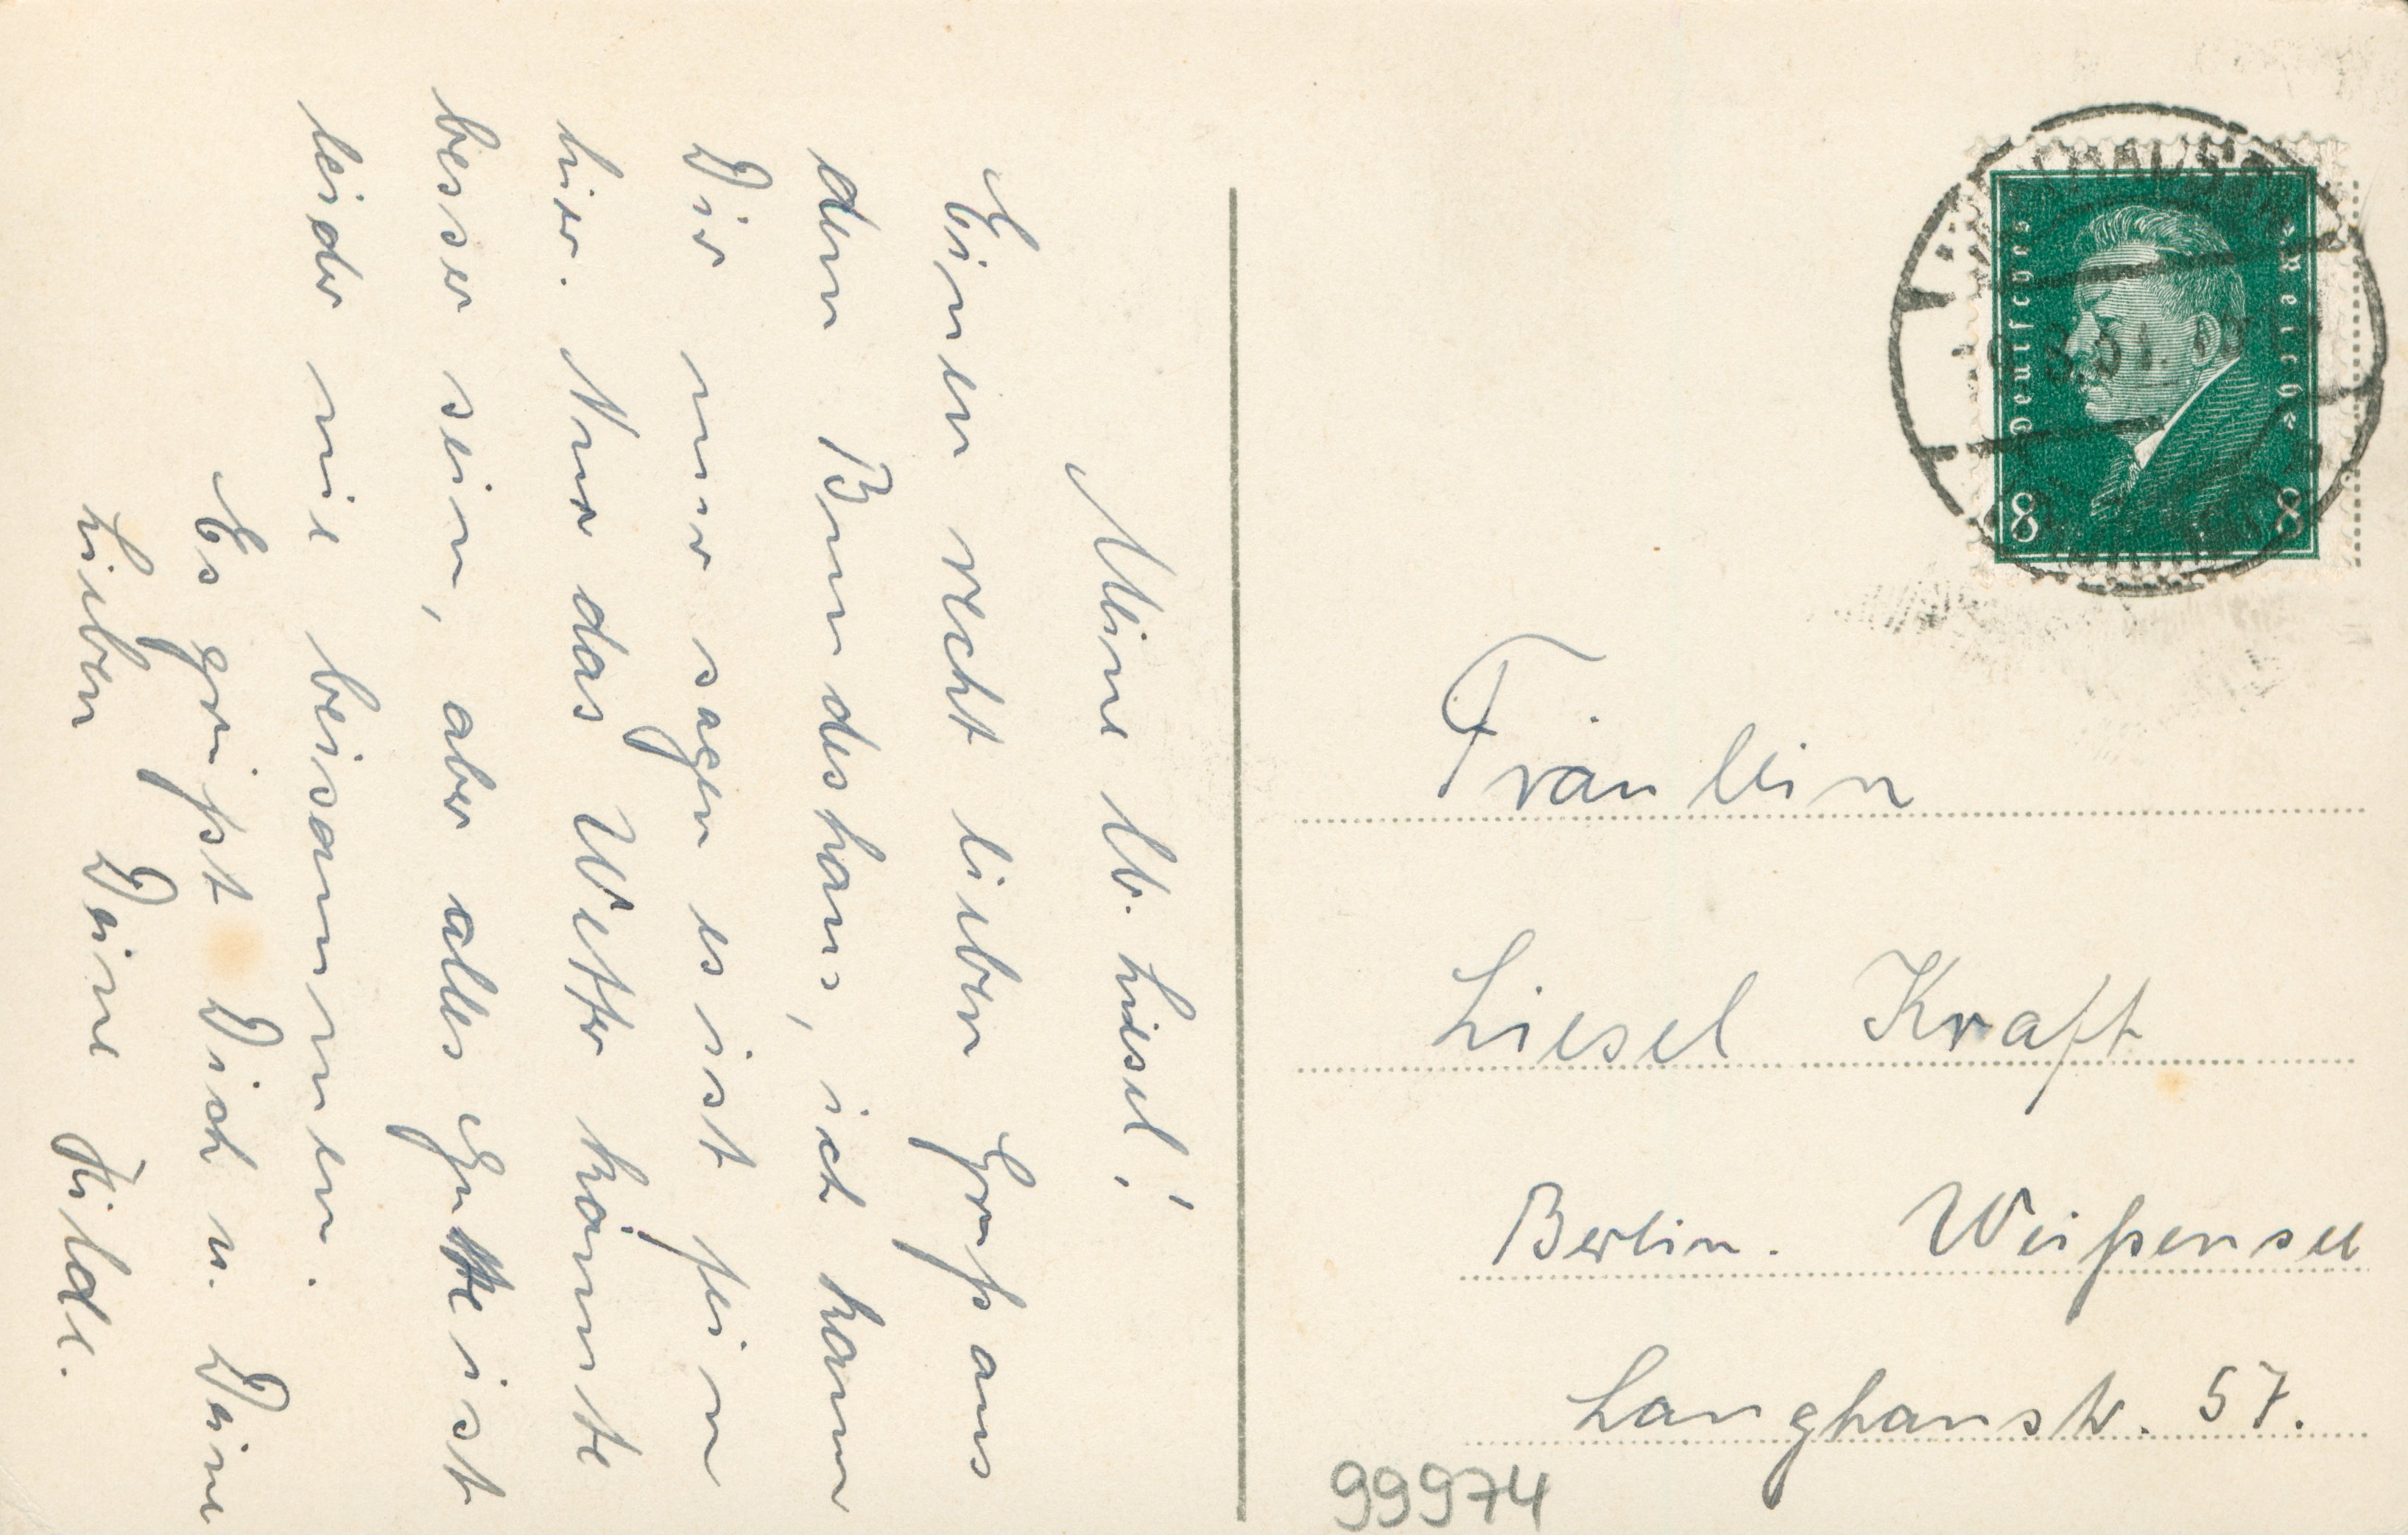 Meine lb. Liesel!
Einen recht lieben Gruß aus
dem Bundeshaus, ich kann
Dir nur sagen es ist fein
hier. Nur das Wetter könnte
besser sein, aber alles Gute ist
leider nie beisammen.
Es grüßt Dich u. Deine
Lieben Deine Hilde.
Deutsches Reich
8 8
Fräulein
Liesel Kraft
Berlin. Weißensee
Langhanstr. 57.
99974